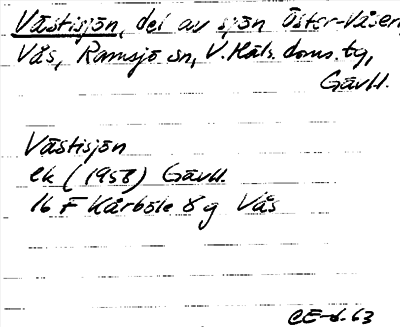 Västisjön, del av sjön Öster-Våsen
Vås, Ramsjö sn, V. Häls. doms. tg,
Gävll.
Västisjön
ek (1958) Gävll.
16 F Kårböle 8 g Vås
CE-d. 63